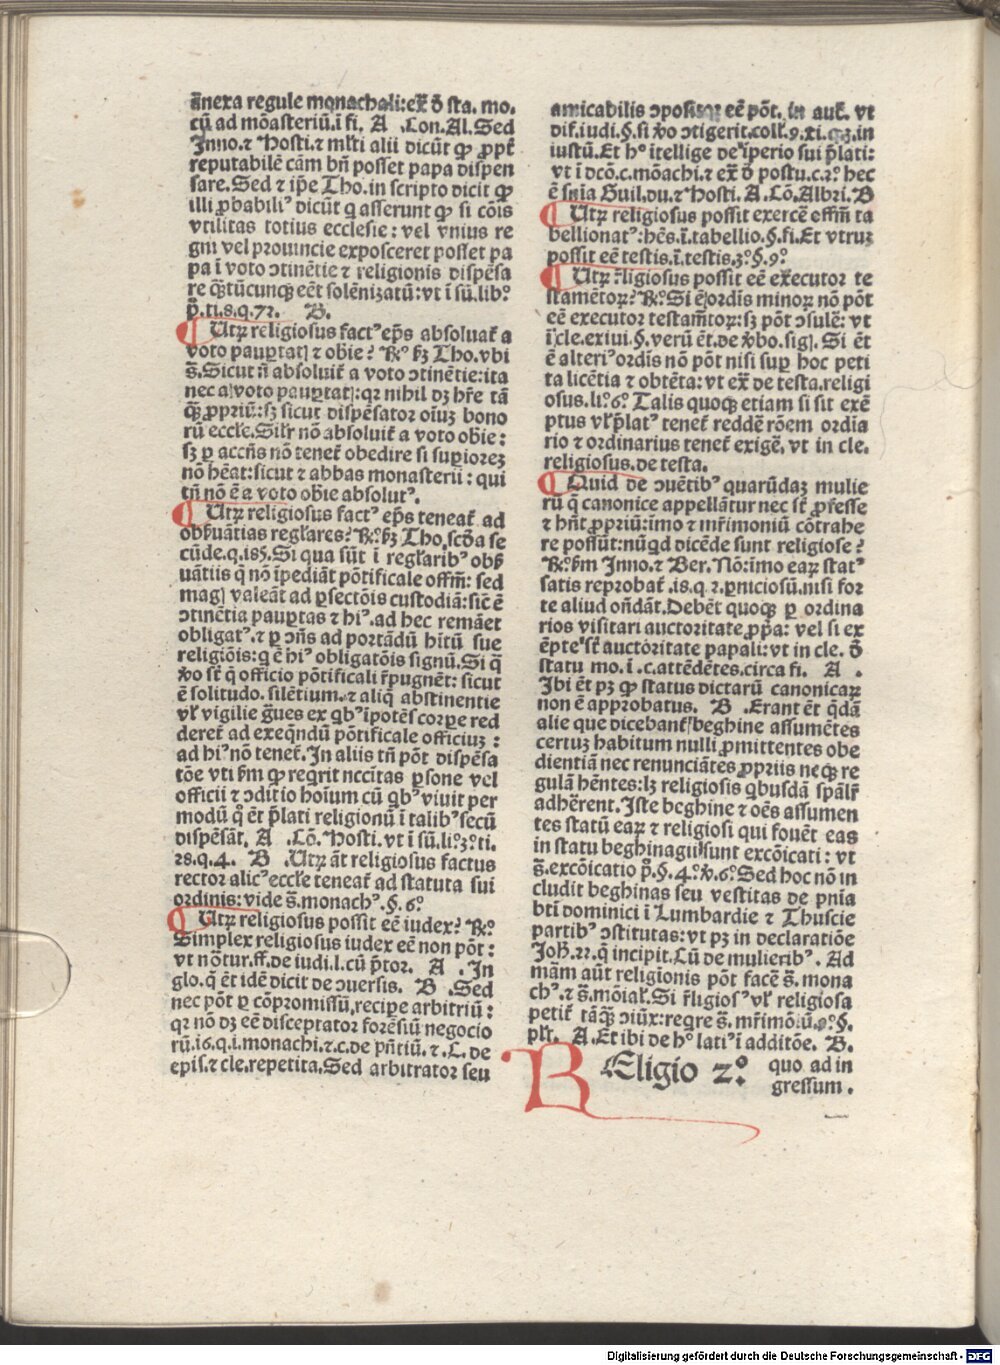 ãnexa regule monachali:ex̃ ð sta. mo.
cũ ad mõasteriũ.ĩ fi. A .Con.Al.Sed
Inno.⁊ Hosti.⁊ ml̃ti alii dicũt ꝙ ꝓpt̃
reputabilẽ cãm bñ posset papa dispen
sare.Sed ⁊ ip̃e Tho.in scripto dicit ꝙ
illi ꝓbabiliꝰ dicũt q asserunt ꝙ si cõis
vtilitas totius ecclesie: vel vnius re
gni vel prouincie exposceret posset pa
pa ĩ voto ↄtinẽtie ⁊ religionis dispẽsa
re q̃tũcunqꝫ eẽt solẽnizatũ:vt ĩ sũ.lib.
p̃.ti.8.q.72. B.
¶ Utꝝ religiosus factꝰ ep̃s absoluat̃ a
voto pauꝑtatꝭ ⁊ obie? ℞.º ẞꝫ Tho.vbi
s̃.Sicut ñ absoluit̃ a voto ↄtinẽtie:ita
nec a voto pauꝑtatꝭ:qꝛ nihil dꝫ hr̃e tã
q̃ꝫ ꝓpriũ:sꝫ sicut dispẽsator oĩuꝫ bono
rũ eccl̃e.Sil̃r nõ absoluit̃ a voto obie:
sꝫ ꝑ accñs nõ tenet̃ obedire si suꝑiorez
nõ hẽat:sicut ⁊ abbas monasterii: qui
tñ nõ ẽ a voto obie absolutꝰ.
¶ Utꝝ religiosus factꝰ ep̃s teneat̃ ad
obẞuãtias regl̃ares?℞.º ẞꝫ Tho.scða se
cũde.q.185.Si qua sũt ĩ regl̃aribꝰ obẞ
uãtiis q̃ nõ ĩpediãt põtificale offm̃: sed
magꝭ valeãt ad ꝑfectõis custodiã:sic̃ ẽ
ↄtinẽtia pauꝑtas ⁊ hiꝰ.ad hec remãet
obligatꝰ.⁊ ꝑ ↄñs ad portãdũ hr̃tũ sue
religiõis:q ẽ hiꝰ obligatõis signũ.Si q̃
ꝟo sť q̃ officio põtificali r̃pugnẽt: sicut
ẽ solitudo. silẽtium.⁊ aliq̃ abstinentie
vl̃ vigilie g̃ues ex qbꝰ ĩpotẽs corꝑe red
deret̃ ad exeqndũ põtificale officiuꝫ :
ad hiꝰ nõ tenet̃.In aliis tñ põt dispẽsa
tõe vti ẞm ꝙ reqrit nccĩtas ꝑsone vel
officii ⁊ ↄditio hoĩum cũ qbꝰ viuit per
modũ q̊ ẽt p̃lati religionũ ĩ talibꝰ secũ
dispẽsãt. A .Cõ. Hosti.vt ĩ sũ.li.º3.º ti.
28.q.4. B .Utꝝ ãt religiosus factus
rector alicꝰ eccl̃e teneat̃ ad statuta sui
ordinis: vide s̃.monachꝰ.§.6.º
¶ Utꝝ religiosus possit eẽ iudex? ℞.º
Simplex religiosus iudex eẽ non põt :
vt nõtur.ff.de iudi.l.cũ p̃tor. A .In
glo.q̃ ẽt idẽ dicit de ↄuersis. B .Sed
nec põt ꝑ cõpromissũ,recipe arbitriũ :
qꝛ nõ dꝫ eẽ disceptator forẽsiũ negocio
rũ.16.q.i.monachi.⁊.c.de pñtiũ.⁊.C. de
epis.⁊ cle.repetita.Sed arbitrator seu
amicabilis ↄpositoꝛ eẽ põt. in aut̃. vt
dif.iudi.§.si ꝟo ↄtigerit.coll.9.⁊i.q.3.in
iustũ.Et hº ĩtellige de ĩperio sui p̃lati:
vt ĩ dcõ.c.mõachi.⁊ ex̃ ð postu.c.2.º hec
ẽ sñia Guil.du.⁊ Hosti. A.Cõ.Albri. B
¶ Utꝝ religiosus possit exercẽ offm̃ ta
bellionatꝰ:hẽs.ĩ.tabellio.§.fi.Et vtruꝫ
possit eẽ testis.ĩ.testis.3.º §.9.º
¶ Utꝝ r̃ligiosus possit eẽ executor te
stamẽtoꝝ? ℞.º Si ẽ ordĩs minoꝝ nõ põt
eẽ executor testam̃toꝝ:sꝫ põt ↄsulẽ: vt
ĩ cle.exiui.§.verũ ẽt.de ꝟbo.sigꝭ. Si ẽt
ẽ alteriꝰ ordĩs nõ põt nisi suꝑ hoc peti
ta licẽtia ⁊ obtẽta: vt ex̃ de testa.religi
osus.li.º6.º Talis quoqꝫ etiam si sit exẽ
ptus vl̃ p̃latꝰ tenet̃ reddẽ rõem ordĩa
rio ⁊ ordinarius tenet̃ exigẽ. vt in cle.
religiosus.de testa.
¶ Quid de ↄuẽtibꝰ quarũdaꝫ mulie
rũ q̃ canonice appellãtur nec sť ꝓfesse
⁊ hñt ꝓpriũ:imo ⁊ mr̃imoniũ cõtrahe
re possũt:nũqd dicẽde sunt religiose?
℞.º ẞm Inno.⁊ Ber. Nõ:imo eaꝝ statꝰ
satis reprobat̃ .18.q.2.ꝑniciosũ.nisi for
te aliud oñdãt.Debẽt quoqꝫ ꝑ ordina
rios visitari auctoritate ꝓp̃a: vel si ex
ẽpte sť auctõritate papali: vt in cle. ð
statu mo. ĩ .c.attẽdẽtes.circa fi. A .
Ibi ẽt pꝫ ꝙ status dictarũ canonicaꝝ
non ẽ approbatus. B .Erant ẽt q̃dã
alie que dicebant̃ beghine assumẽtes
certuꝫ habitum nulli ꝓmittentes obe
dientiã nec renunciãtes ꝓpriis neqꝫ re
gulã hẽntes:lꝫ religiosis qbusdã sp̃alr̃
adhẽrent.Iste beghine ⁊ oẽs assumen
tes statũ eaꝝ ⁊ religiosi qui fouẽt eas
in statu beghinagii sunt excõicati: vt
s̃.excõicatio p̃.§.4.º ꝟ.6.º Sed hoc nõ in
cludit beghinas seu vestitas de pnĩa
btĩ dominici ĩ Lumbardie ⁊ Thuscie
partibꝰ ↄstitutas: vt pꝫ in declaratiõe
Joh̃.22.q̃ incipit.Cũ de mulieribꝰ. Ad
mãm aũt religionis põt facẽ s̃. mona
chꝰ.⁊ s̃.mõiał.Si r̃ligiosꝰ vl̃ religiosa
petit̃ tãq̃ꝫ ↄiũx:reqre s̃. mr̃imõ:iũ.9.º §.
pl̃r. A.Et ibi de hº latiꝰ ĩ additõe. B.
REligio 2.º quo ad in
gressum.
Digitalisierung gefördert durch die Deutsche Forschungsgemeinschaft - DFG